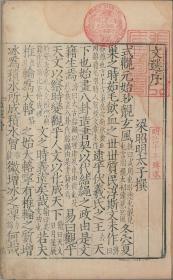 文選序
梁昭明太子撰
式觀元始眇覿玄風冬穴夏
巢之時茹毛飲血之世世質民淳斯文未作
逮乎伏羲氏之王天
下也始畫八卦造書契以代結繩之政由是文
籍生焉易曰觀乎
天文以察時變觀乎人文以化成天下
文之時義遠矣哉若夫
椎輪為大輅之始大輅寧有椎輪之質增
冰為積水所成積水曾微增冰之凜